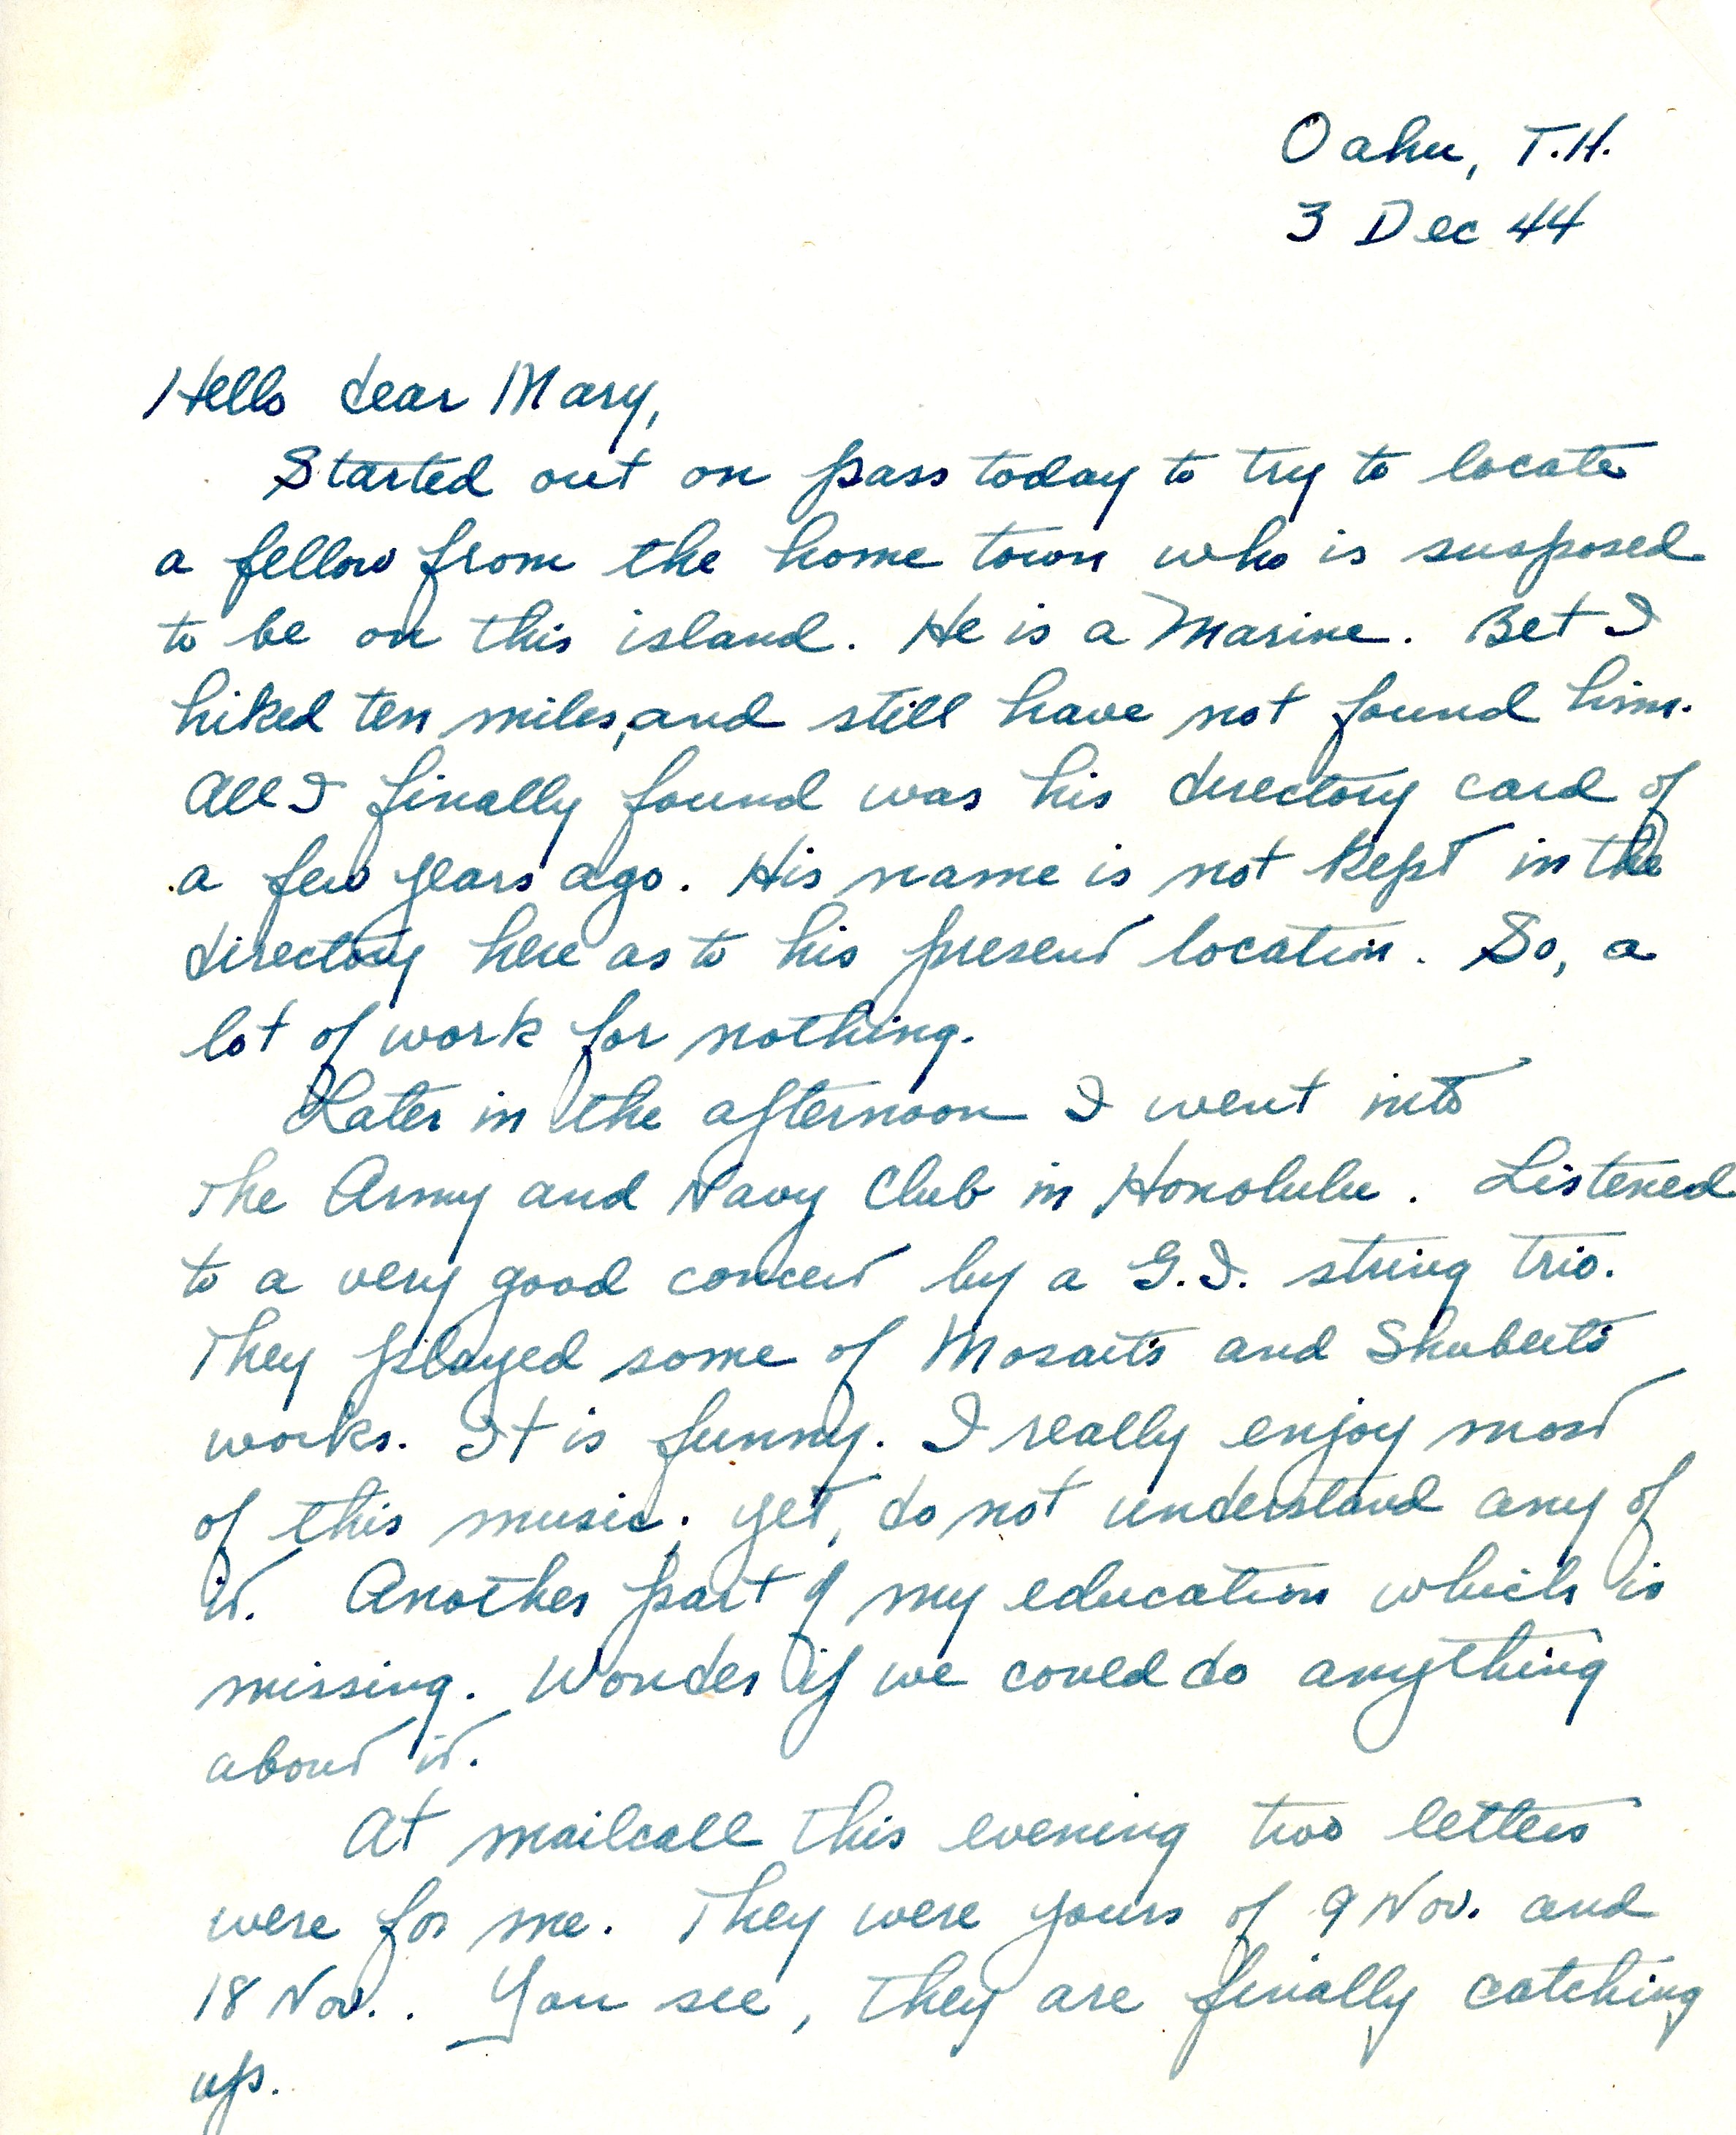 Oahu, T.H.
3 Dec 44
Hello dear Mary,
Started out on pass today to try to locate
a fellow from the home town who is susposed
to be on this island. He is a Marine. Bet I
hiked ten miles, and still have not found him.
All I finally found was his directory card of
a few years ago. His name is not kept in the
directory here as to his present location. So, a
lot of work for nothing.
Later in the afternoon I went into
the Army and Navy Club in Honolulu. Listened
to a very good concert by a G.I. string trio.
They played some of Mozarts and Shuberts
works. It is funny. I really enjoy most
of this music, yet, do not understand any of
it. Another part of my education which is
missing. Wonder if we could do anything
about it.
At mailcall this evening two letters
were for me. They were yours of 9 Nov. and
18 Nov.. You see, they are finally catching
up.